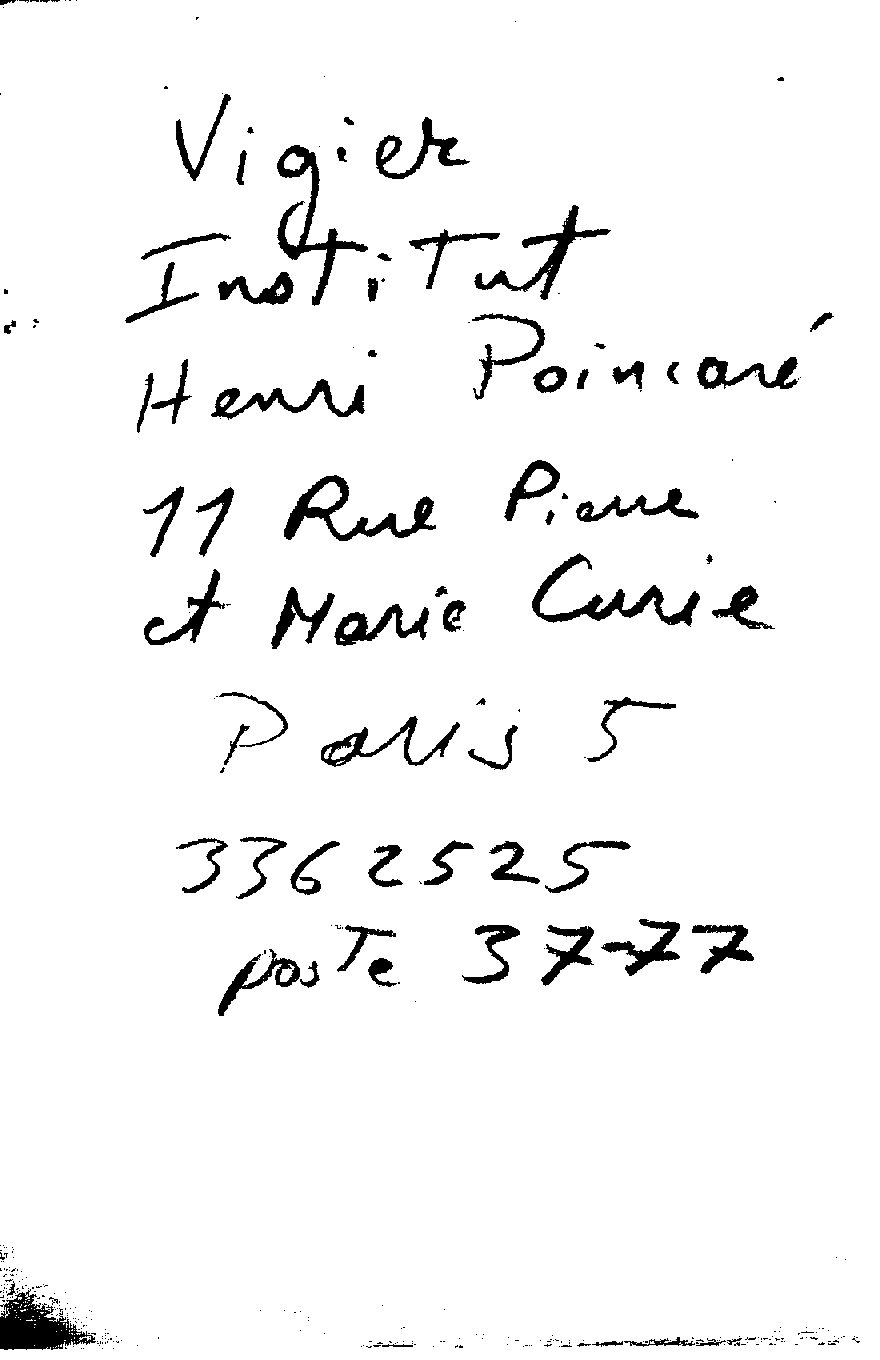 Vigier
Institut
Henri Poincaré
11 Rue Pierre
et Marie Curie
Paris 5
3362525
poste 37-77